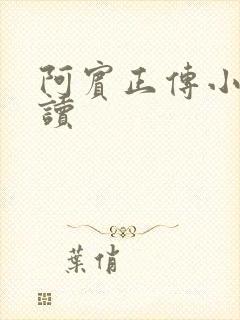 阿賓正傳小
讀
葉俏